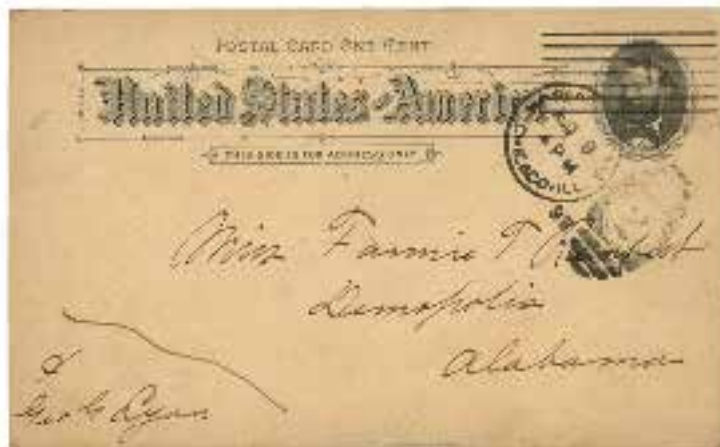 POSTAL CARD ONE CENT
United States of America
THIS SIDE IS FOR ADDRESS ONLY
CHICAGO, ILL.
4 PM
Miss Fannie T
Demopolis
Alabama
Ryan